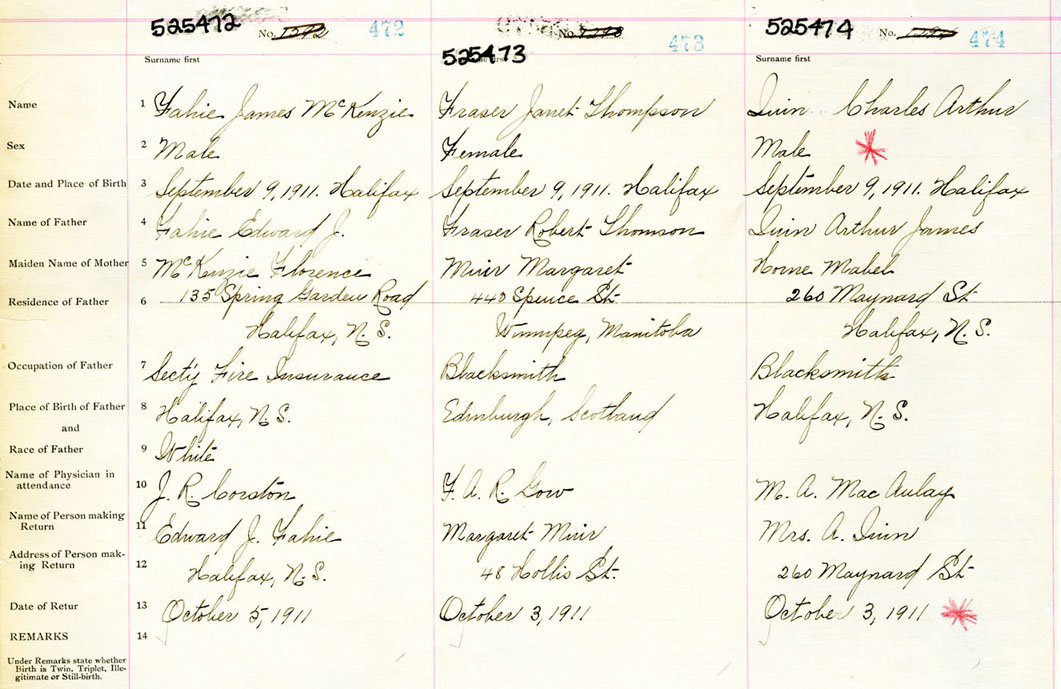 525472 No. 1292 472
525473 No. 1293 473
525474 No. 474
Surname first
Surname first
Name 1 Fahie James McKenzie Fraser Janet Thompson Charles Arthur
Sex 2 Male Female Male
Date and Place of Birth 3 September 9, 1911. Halifax September 9, 1911. Halifax September 9, 1911. Halifax
Name of Father 4 Fahie Edward J. Fraser Robert Thomson Arthur James
Maiden Name of Mother 5 McKenzie Florence Muir Margaret Horne Mabel
Residence of Father 6 135 Spring Garden Road 440 Spence St. 260 Maynard St
Halifax, N.S. Winnipeg, Manitoba Halifax, N.S.
Occupation of Father 7 Secty Fire Insurance Blacksmith Blacksmith
Place of Birth of Father 8 Halifax, N.S. Edinburgh, Scotland Halifax, N.S.
and
Race of Father 9 White
Name of Physician in
attendance 10 J. R. Corston F. A. R. Gow M. A. MacAulay
Name of Person making
Return 11 Edward J. Fahie Margaret Muir Mrs. A.
Address of Person mak-
ing Return 12 Halifax, N.S. 48 Hollis St. 260 Maynard St
Date of Retur 13 October 5, 1911 October 3, 1911 October 3, 1911
REMARKS 14
Under Remarks state whether
Birth is Twin, Triplet, Ille-
gitimate or Still-birth.